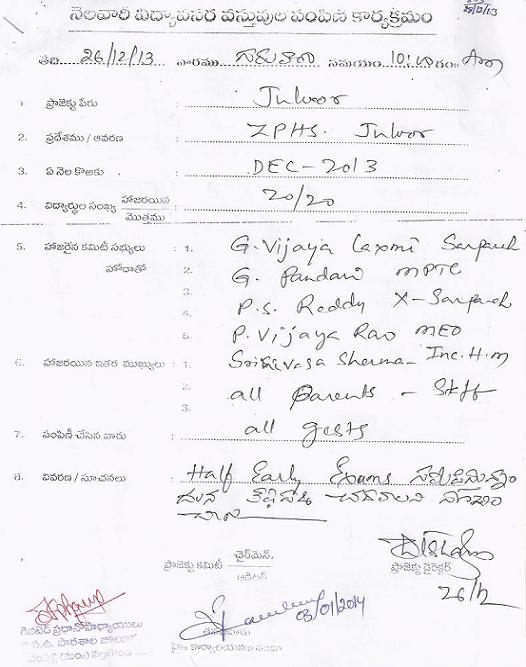 నెలవారి విద్యావసర వస్తువుల పంపిణి కార్యక్రమం
తేది 26/12/13 వారము గురువారం సమయం 10:00 గం॥
1. ప్రాజెక్టు పేరు : Juloor
2. ప్రదేశము / ఆవరణ : ZPHS. Juloor
3. ఏ నెల కొఱకు : DEC-2013
4. విద్యార్థుల సంఖ్య హాజరయిన / మొత్తము : 20/20
5. హాజరైన కమిటీ సభ్యులు : 1. G. Vijaya Laxmi Sarpanch
హోదాతో 2. G. Pandari MPTC
3. P.S. Reddy X-Sarpanch
4.
5. P. Vijaya Rao MEO
6. హాజరయిన ఇతర ముఖ్యులు : 1. Srinivasa Sherma Inc. H.M
2. all Parents - Staff
3.
7. పంపిణీ చేసిన వారు : all gests
8. వివరణ / సూచనలు : Half Early Exams
చదవాలని
ప్రాజెక్టు కమిటీ చైర్‌మెన్. / ఆడిటర్
ప్రాజెక్టు డైరెక్టర్
26/12
03/01/2014
గెజిటెడ్ ప్రధానోపాధ్యాయులు
జి.ప. పాఠశాల జూలూరు